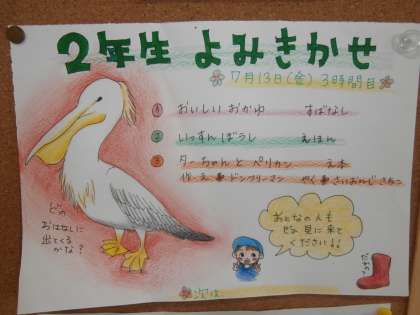 2年生 よみきかせ
7月13日(金) 3時間目
① おいしい おかゆ すばなし
② いっすんぼうし えほん
③ ターちゃんと ペリカン え本
作・え ドン・フリーマン やく さいおんじ さちこ
どの
おはなしに
出てくる
かな?
おとなの人も
ぜひ 見に来て
ください!!
次は